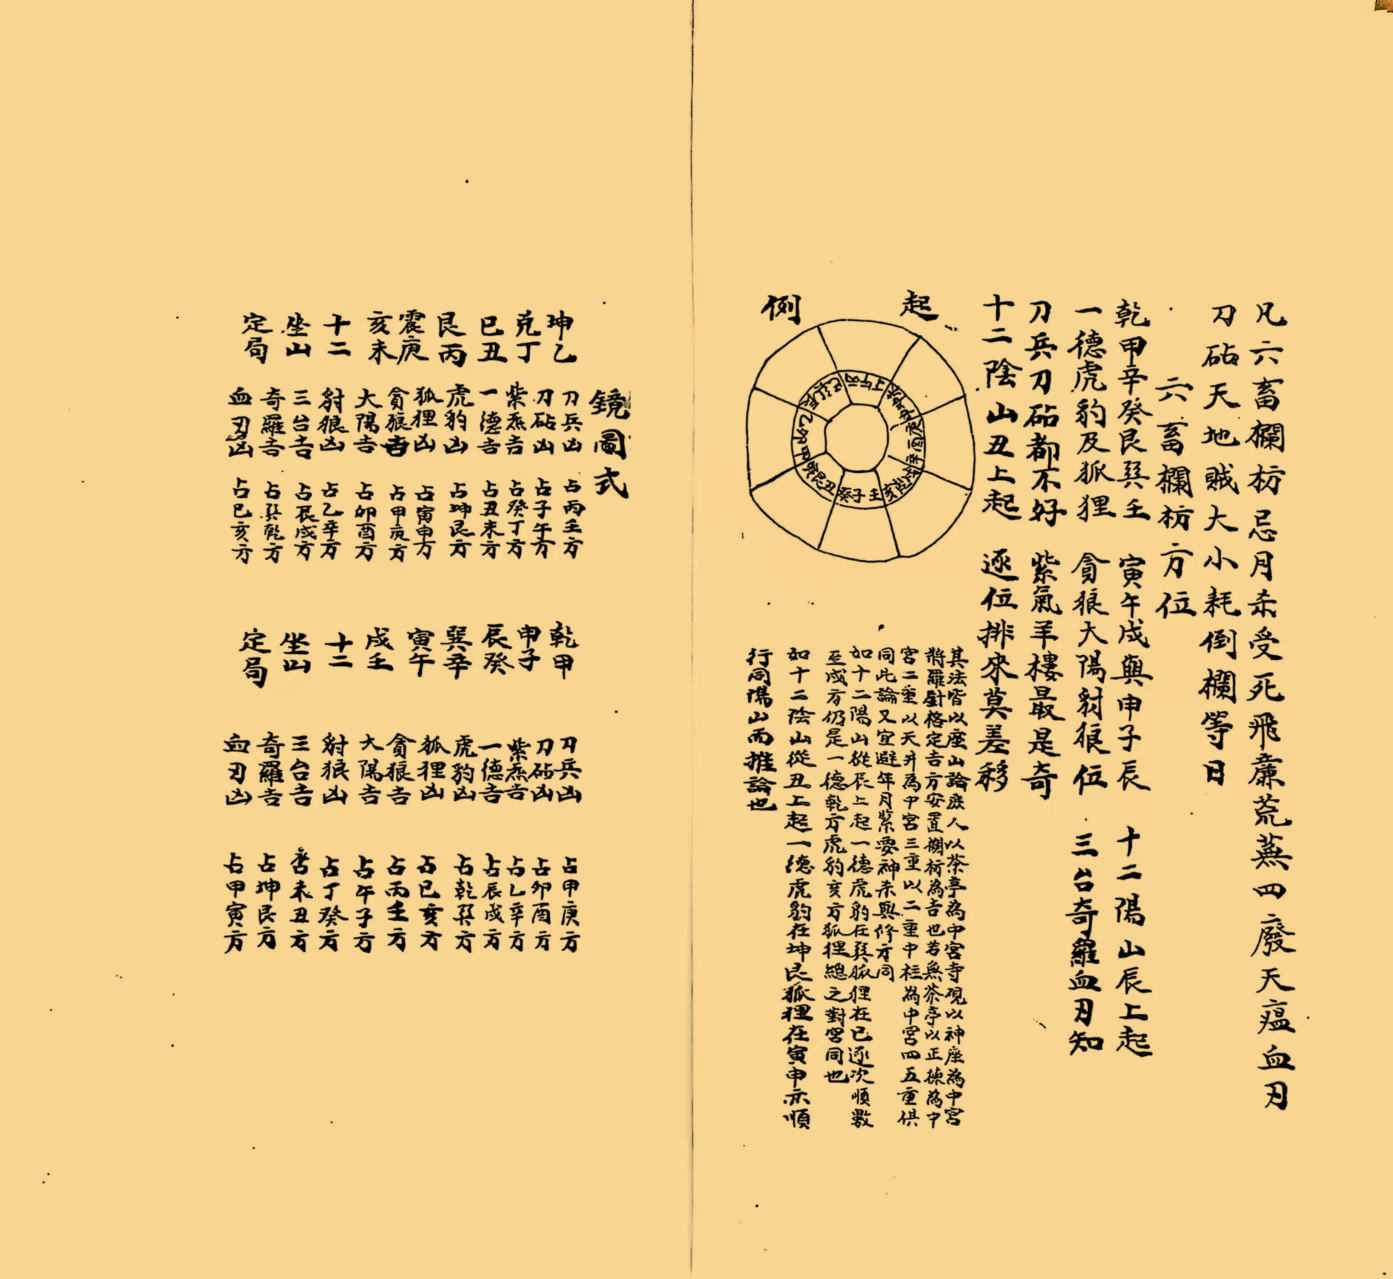 凡六畜欄枋忌月杀受死飛廉荒蕪四廢天瘟血刃
刀砧天地賊大小耗倒欄等日
六畜欄枋方位
乾甲辛癸艮巽壬 寅午戌與申子辰 十二陽山辰上起
一德虎豹及狐狸 貪狼大陽豺狼位 三台奇羅血刃知
刀兵刀砧都不好 紫氣羊棲最是奇
十二陰山丑上起 逐位排來莫差移
起例
其法皆以座山論庶人以茶亭為中宮寺观以神座為中宮
將羅對格定吉方安置欄枋為吉也若無茶亭以正棟為中
宮二重以天井為中宮三重以二重中栏為中宮四五重俱
同此論又宜避年月紫要神杀與修方同
如十二陽山從辰上起一德虎豹在巽狐狸在巳逐次順數
至戌方仍是一德乾方虎豹亥方狐狸總之對宮同也
如十二陰山從丑上起一德虎豹在坤艮狐狸在寅申亦順
行同陽山而推論也
鏡圖式
坤乙 兌丁 巳丑 艮丙 震庚 亥未 十二 坐山 定局
刀兵凶 占丙壬方
刀砧凶 占子午方
紫燕吉 占癸丁方
一德吉 占丑未方
虎豹凶 占坤艮方
狐狸凶 占寅申方
貪狼吉 占甲庚方
大陽吉 占卯酉方
豺狼凶 占乙辛方
三台吉 占辰戌方
奇羅吉 占巽乾方
血刃凶 占巳亥方
乾甲 申子 辰癸 巽辛 寅午 戌壬 十二 坐山 定局
刀兵凶 占甲庚方
刀砧凶 占卯酉方
紫燕吉 占乙辛方
一德吉 占辰戌方
虎豹凶 占乾巽方
狐狸凶 占巳亥方
貪狼吉 占丙壬方
大陽吉 占午子方
豺狼凶 占丁癸方
三台吉 占未丑方
奇羅吉 占坤艮方
血刃凶 占甲寅方